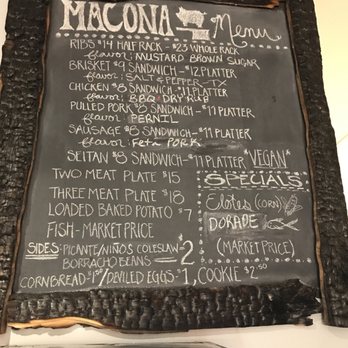 MACONA Menu
RIBS $14 HALF RACK - $23 WHOLE RACK
flavor: MUSTARD BROWN SUGAR
BRISKET $9 SANDWICH - $12 PLATTER
flavor: SALT & PEPPER - TX
CHICKEN $8 SANDWICH - $11 PLATTER
flavor: BBQ DRY RUB
PULLED PORK $8 SANDWICH - $11 PLATTER
flavor: PERNIL
SAUSAGE $8 SANDWICH - $11 PLATTER
flavor: Feta PORK
SEITAN $8 SANDWICH - $11 PLATTER *VEGAN*
TWO MEAT PLATE $15
THREE MEAT PLATE $18
LOADED BAKED POTATO $7
FISH - MARKET PRICE
SIDES: PICANTE/NIÑOS COLESLAW $2
BORRACHO BEANS
CORNBREAD $1.50/DEVILED EGGS $1, COOKIE $2.50
SPECIALS
Elotes (CORN)
DORADE
(MARKET PRICE)